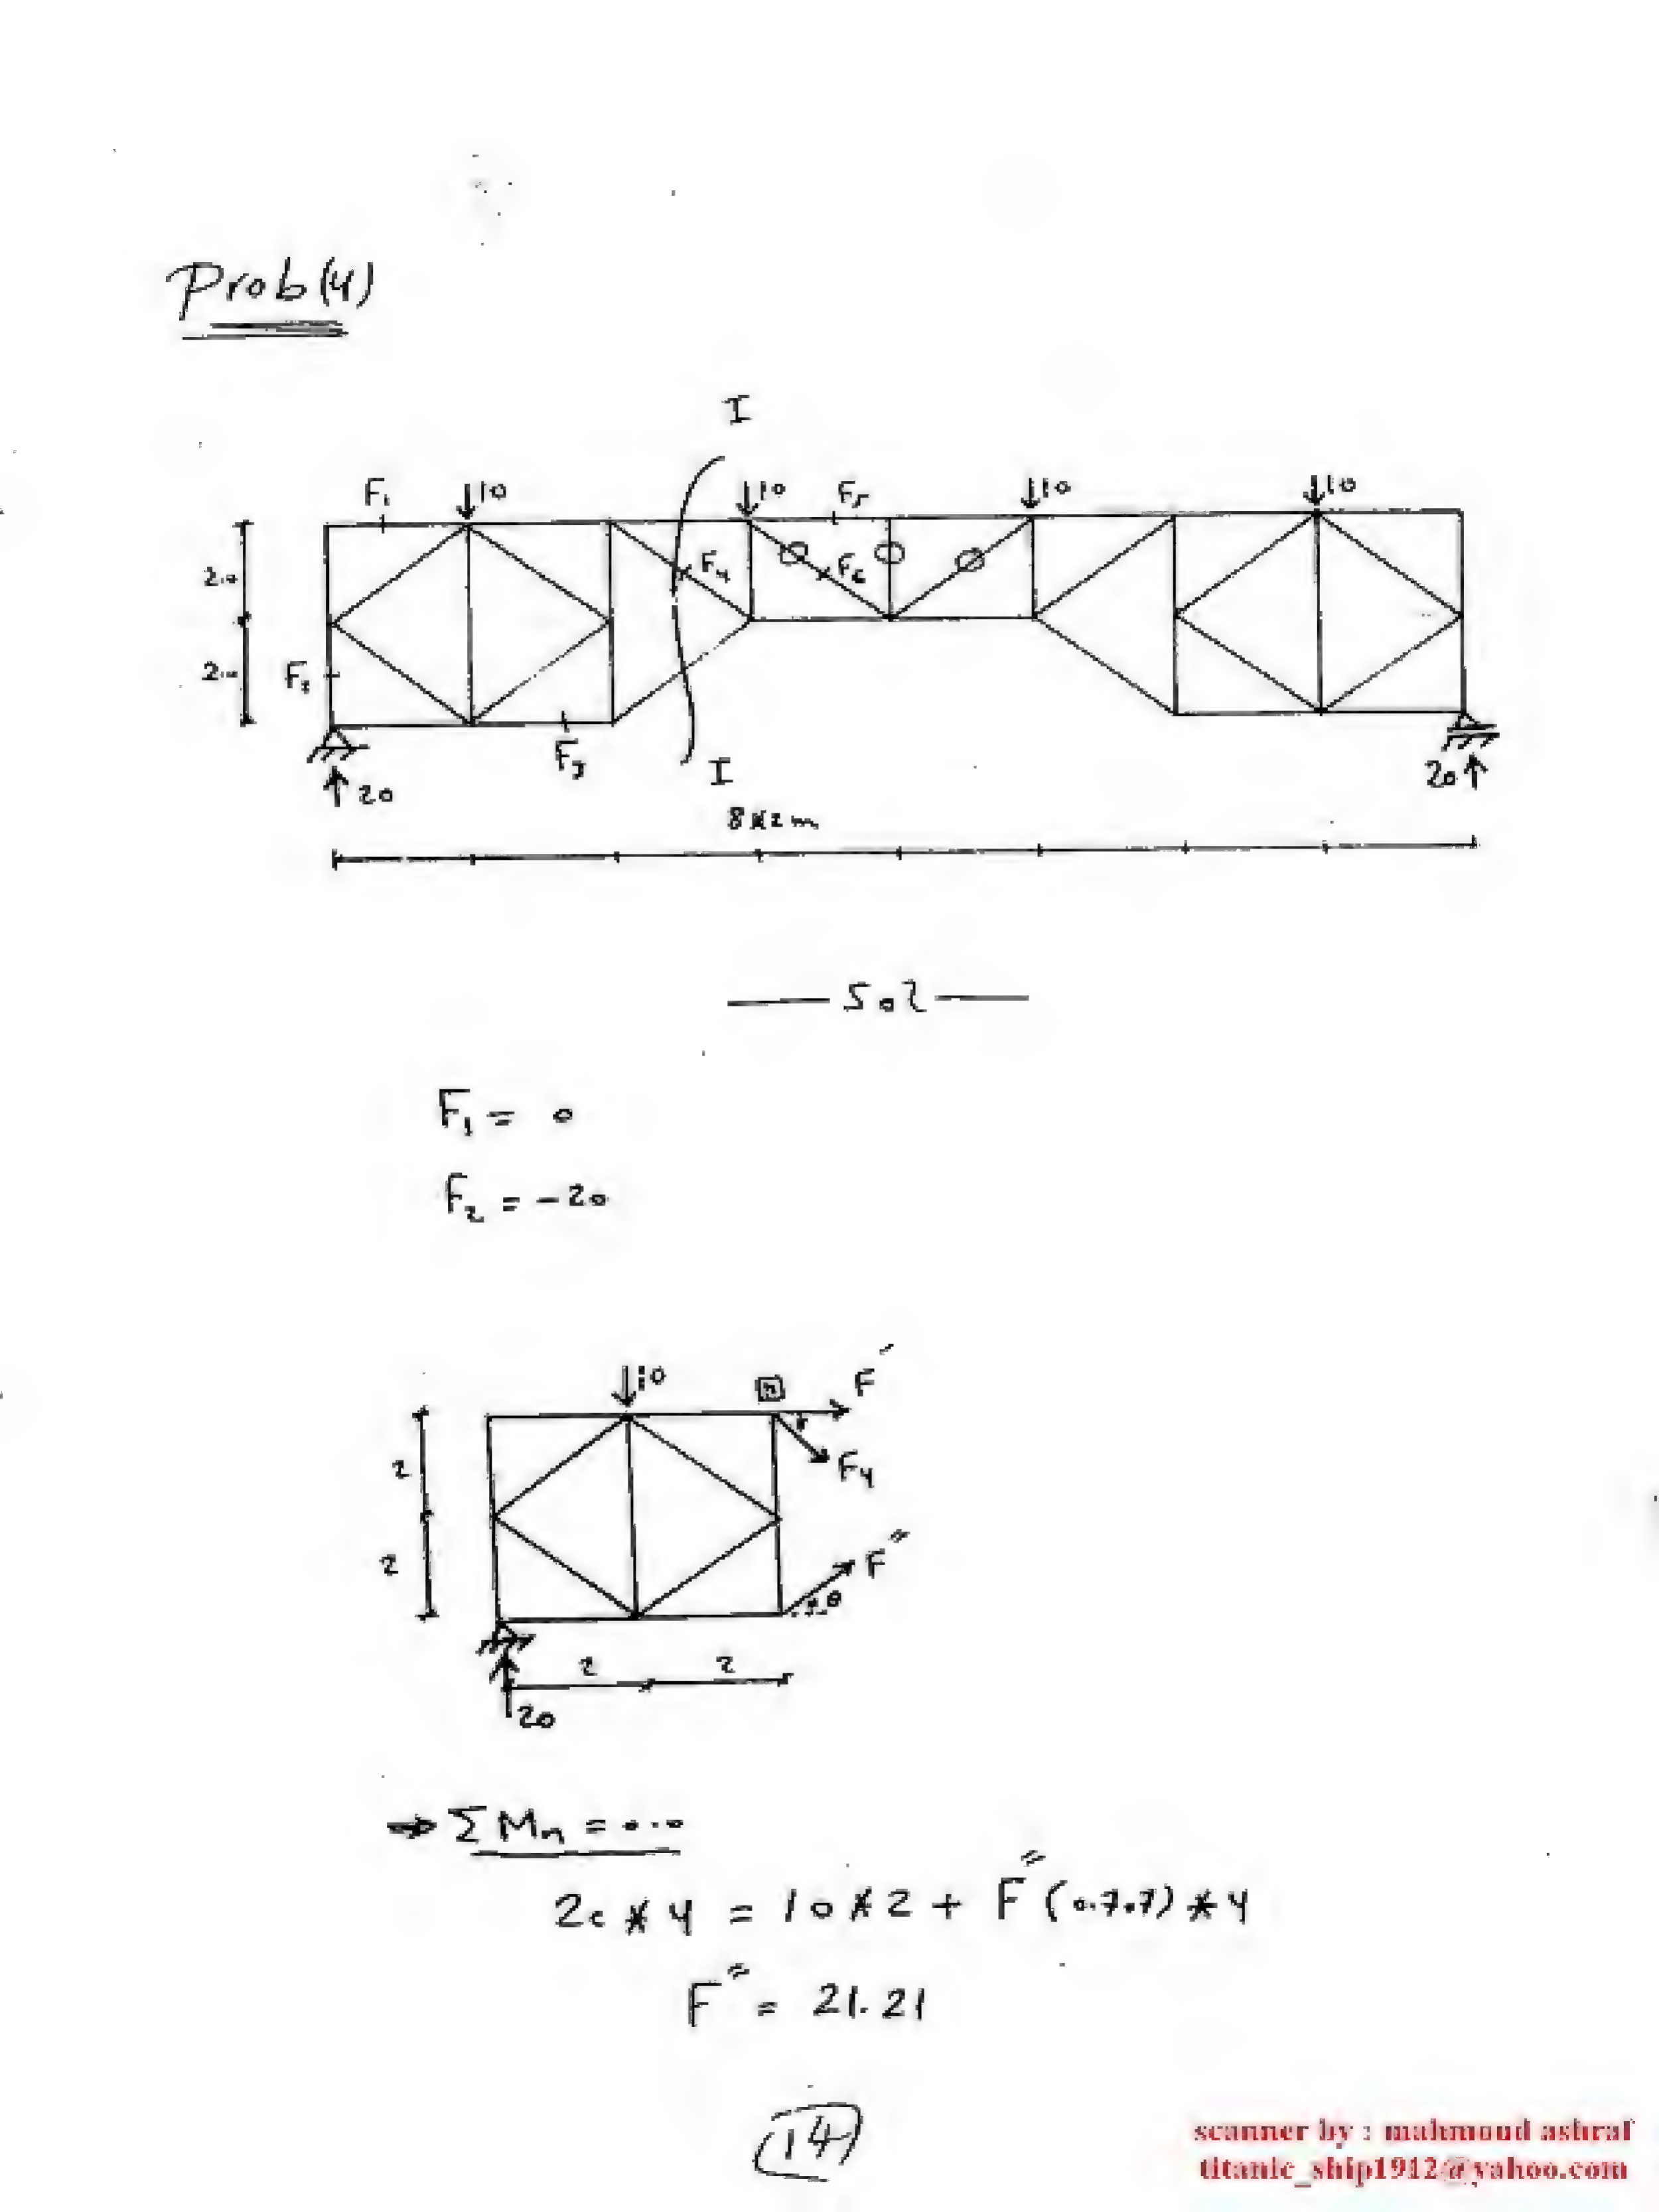 Prob(4)
I
F₁ ↓10 ↓10 F₅ ↓10 ↓10
2.0 F₄ F₆
2.0 F₂
F₃ I
20 20
8*2m
Sol
F₁ = 0
F₂ = -20
↓10 n F′
2 F₄
2 F″
θ
2 2
20
⇒ ΣMn = 0.0
20 * 4 = 10 * 2 + F″ (0.707) * 4
F″ = 21.21
14
scanner by : mahmoud ashraf
titanic_ship1912@yahoo.com